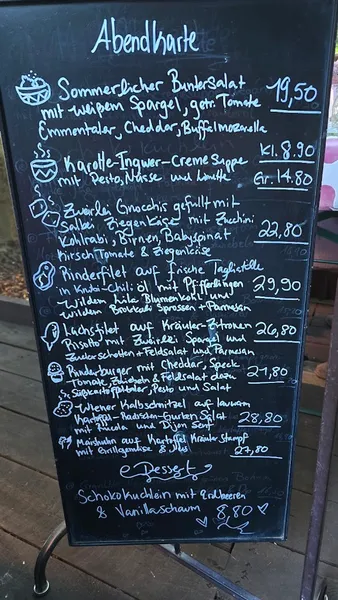 Abendkarte
Sommerlicher Buntersalat 19,50
mit weißem Spargel, getr. Tomate
Emmentaler, Cheddar, Büffelmozarella
Karotte-Ingwer-Creme Suppe Kl. 8.90
mit Pesto, Nüsse und Limette Gr. 14.80
Zweierlei Gnocchis gefüllt mit
Salbei Ziegenkäse mit Zucchini
Kohlrabi, Birnen, Babyspinat 22,80
Kirsch Tomate & Ziegenkäse
Rinderfilet auf frische Tagliatelle
in Knobi-Chili öl mit Pfifferlingen 29,90
wilden Lila Blumenkohl und
wilden Brokkoli Sprossen + Parmesan
Lachsfilet auf Kräuter-Zitronen 26,80
Risotto mit Zweierlei Spargel und
Zuckerschotten + Feldsalat und Parmesan
Rinderburger mit Cheddar, Speck 21,80
Tomate, Zwiebeln & Feldsalat dazu
Süßkartoffeltaler, Pesto und Salat
Wiener Kalbschnitzel auf lauwarm
Kartoffel-Radieschen-Gurken Salat 28,80
mit Rucola und Dijon Senf
Maishuhn auf Kartoffel Kräuter Stampf
mit Grillgemüse & Jus 27,80
Dessert
Schokoküchlein mit Erdbeeren
& Vanilleschaum 8,80